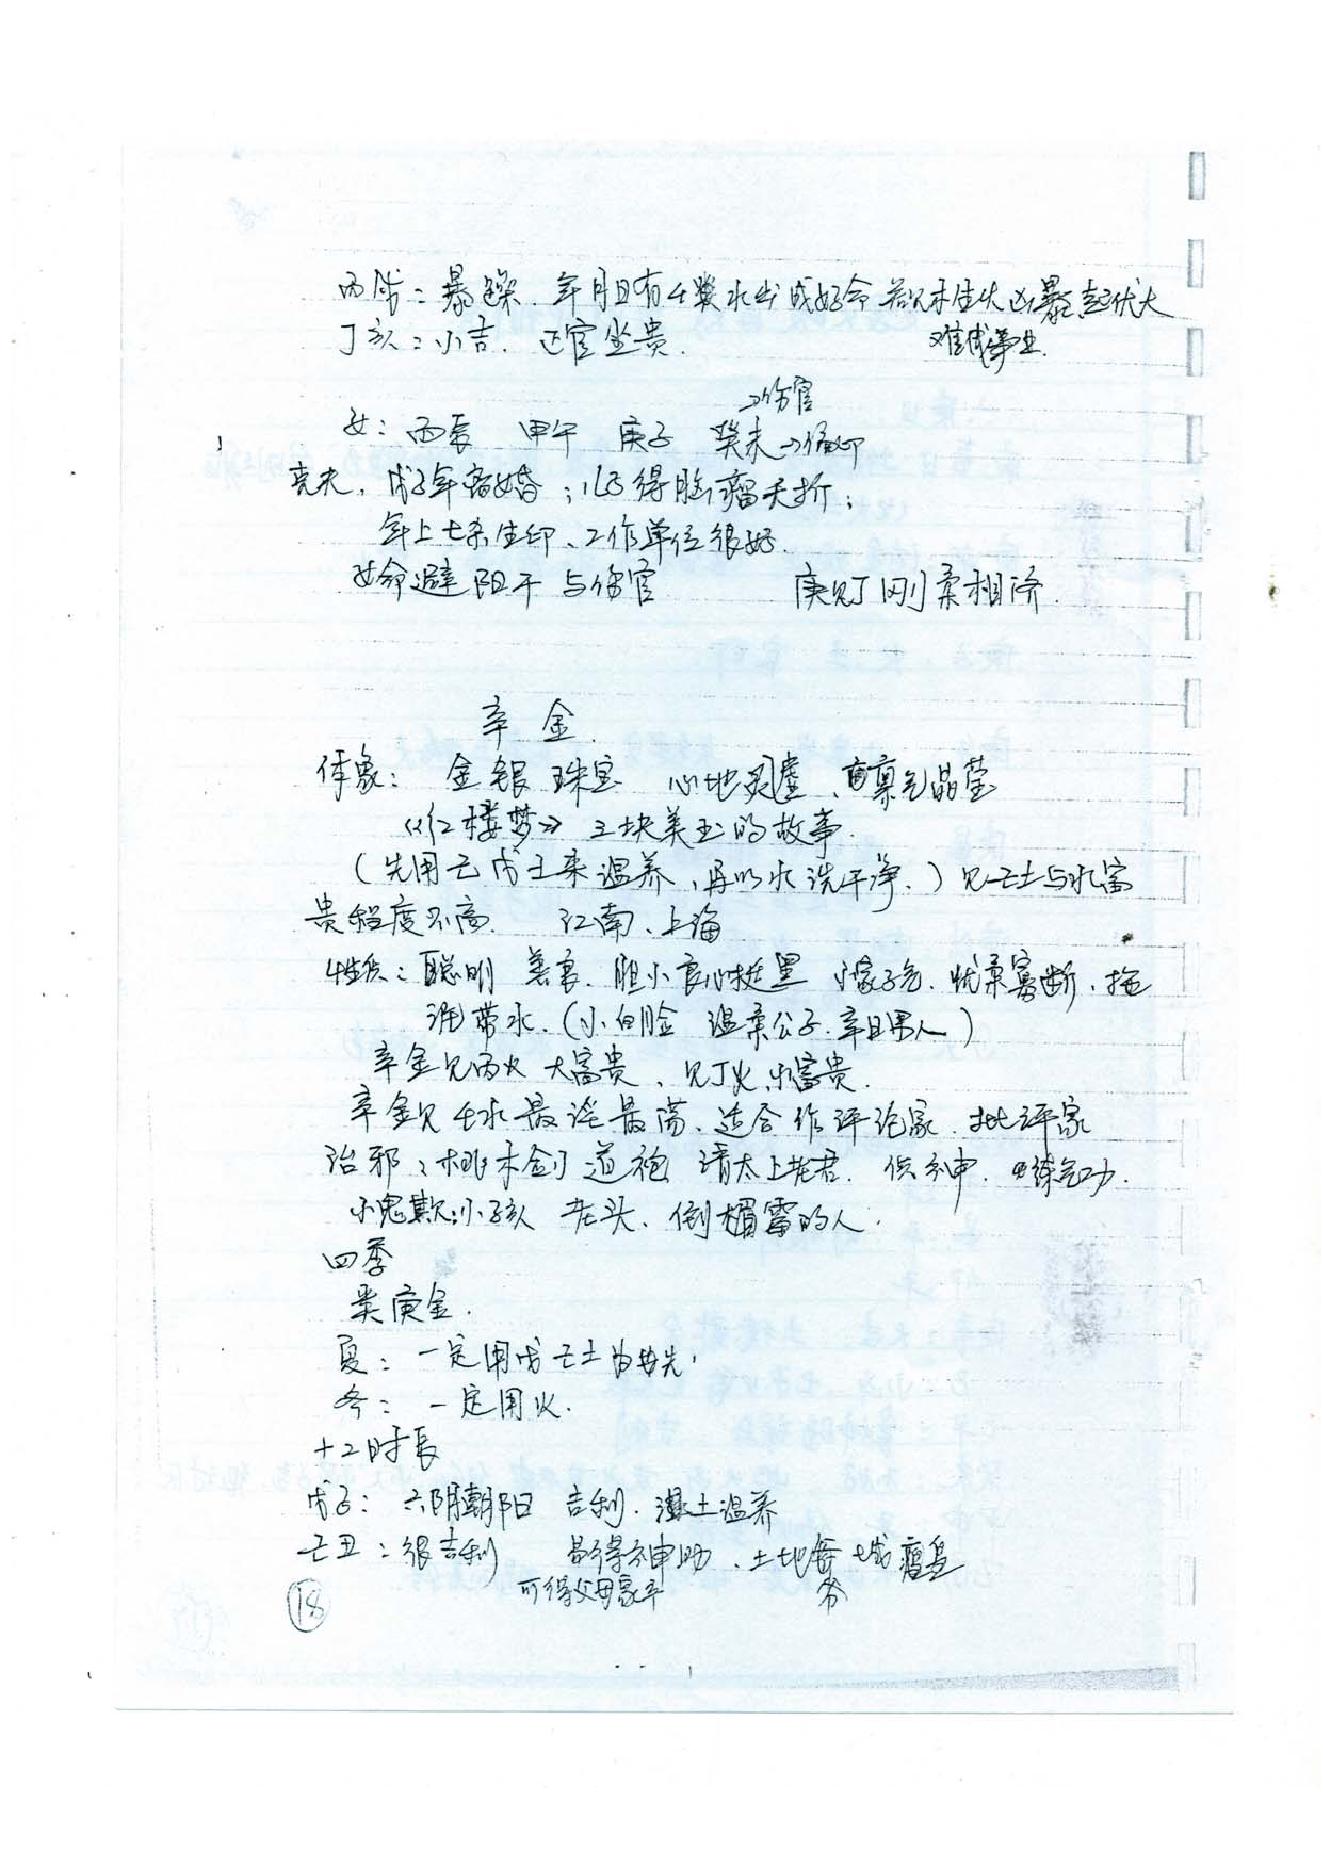 丙戌：暴躁．年月日有壬癸水出成好命 若见木生火凶暴，起伏大
难成事业．
丁亥：小吉．正官坐贵．
→伤官
女：丙辰 甲午 庚子 癸未→偏印
克夫，戊子年离婚；儿子得脑瘤夭折；
年上七杀生印、工作单位很好．
女命避阳干与伤官 庚见丁刚柔相济．
辛金．
体象： 金银珠宝 心地灵虚、禀气晶莹
《红楼梦》三块美玉的故事．
(先用己戊土来温养，再以水洗干净．) 见己土与水富
贵程度不高． 江南、上海
性质：聪明 善良．胆小良心挺黑 小家子气．优柔寡断、拖
泥带水．(小白脸 温柔公子．辛日男人)
辛金见丙火 大富贵、见丁火，小富贵．
辛金见壬水最淫最荡、适合作评论家．批评家
治邪：桃木剑 道袍 请太上老君．供神．练气功．
小鬼欺小孩 老头、倒楣的人．
四季
类庚金．
夏：一定用戊己土为先．
冬：一定用火．
十二时辰
戊子：六阴朝阳 吉利．湿土温养
己丑：很吉利 易得神助、土地爷 城隍
可得父母家产 爷
⑱